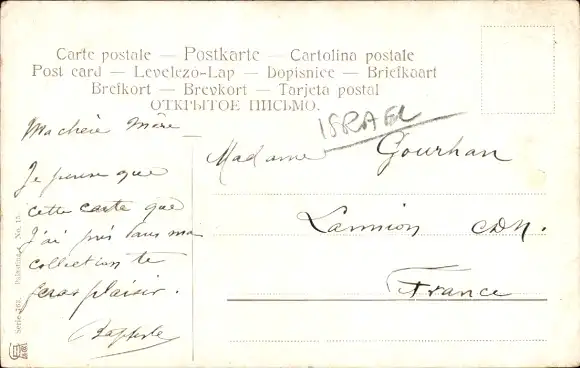 Carte postale — Postkarte — Cartolina postale
Post card — Levelező-Lap — Dopisnice — Briefkaart
Brefkort — Brevkort — Tarjeta postal
ОТКРЫТОЕ ПИСЬМО.
ISRAEL
Ma chère Mère
Je pense que
cette carte que
j'ai pris dans ma
collection te
feras plaisir.
Baptiste
Madame Gourhan
Lannion CDN.
France
Serie 762. Palestine No. 15.